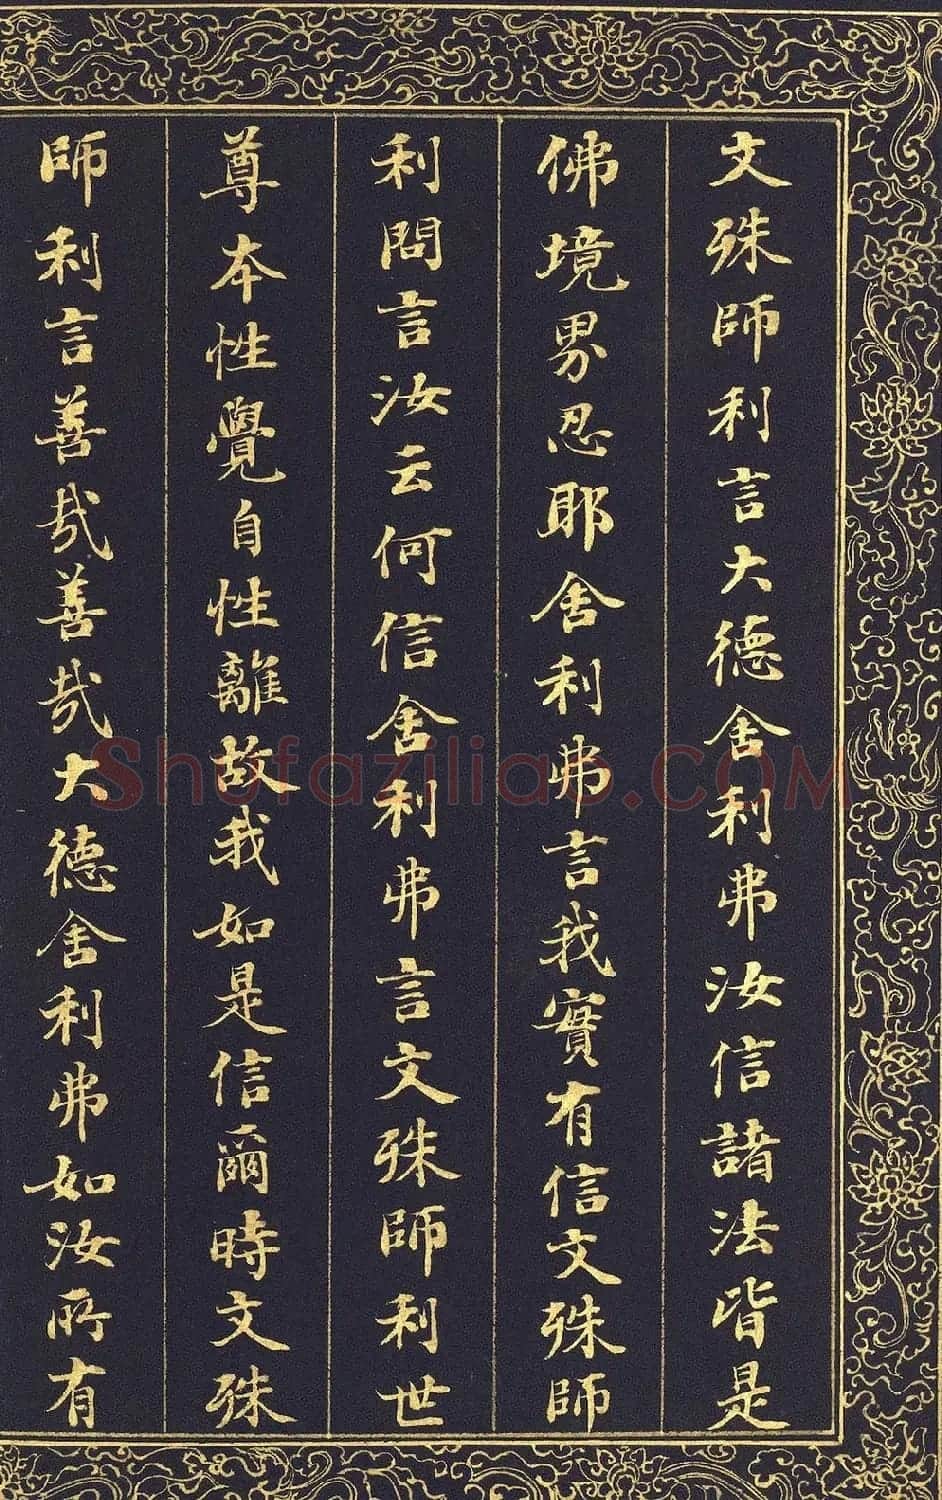 文殊師利言大德舍利弗汝信諸法皆是
佛境界忍耶舍利弗言我實有信文殊師
利問言汝云何信舍利弗言文殊師利世
尊本性覺自性離故我如是信爾時文殊
師利言善哉善哉大德舍利弗如汝所有
Shufaziliao.COM